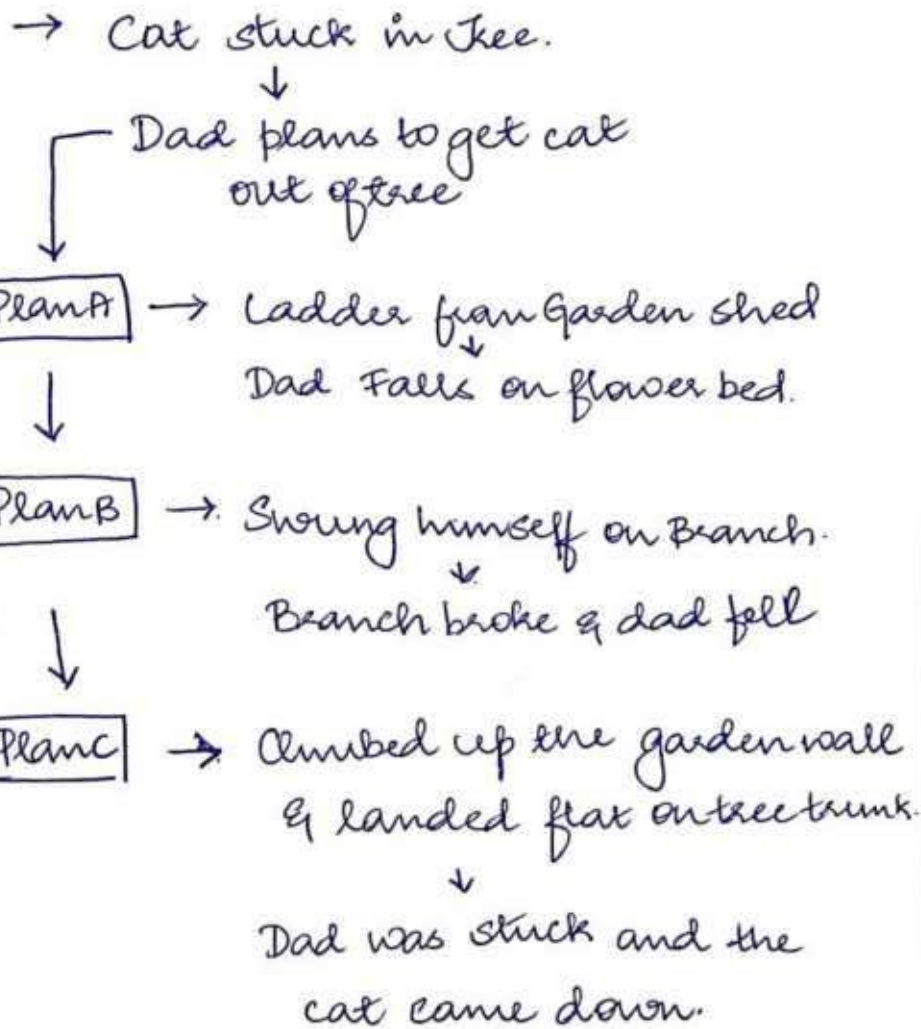 → Cat stuck in Tree.
↓
Dad plans to get cat
out of tree
Plan A → Ladder from Garden shed
↓
Dad Falls on flower bed.
Plan B → Swung himself on Branch.
↓
Branch broke & dad fell
Plan C → Climbed up the garden wall
& landed flat on tree trunk.
↓
Dad was stuck and the
cat came down.